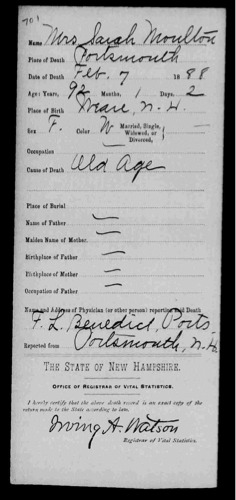 701
Name Mrs Sarah Moulton
Place of Death Portsmouth
Date of Death Feb. 7 1888
Age: Years, 92 Months, 1 Days. 2
Place of Birth Weare, N. H.
Sex F. Color W Married, Single, Widowed, or Divorced, —
Occupation —
Cause of Death Old Age
Place of Burial
Name of Father —
Maiden Name of Mother. —
Birthplace of Father —
Birthplace of Mother —
Occupation of Father —
Name and Address of Physician (or other person) reporting said Death
F. L. Benedict, Ports.
Reported from Portsmouth, N. H.
THE STATE OF NEW HAMPSHIRE.
OFFICE OF REGISTRAR OF VITAL STATISTICS.
I hereby certify that the above death record is an exact copy of the
return made to the State according to law.
Irving A. Watson
Registrar of Vital Statistics.